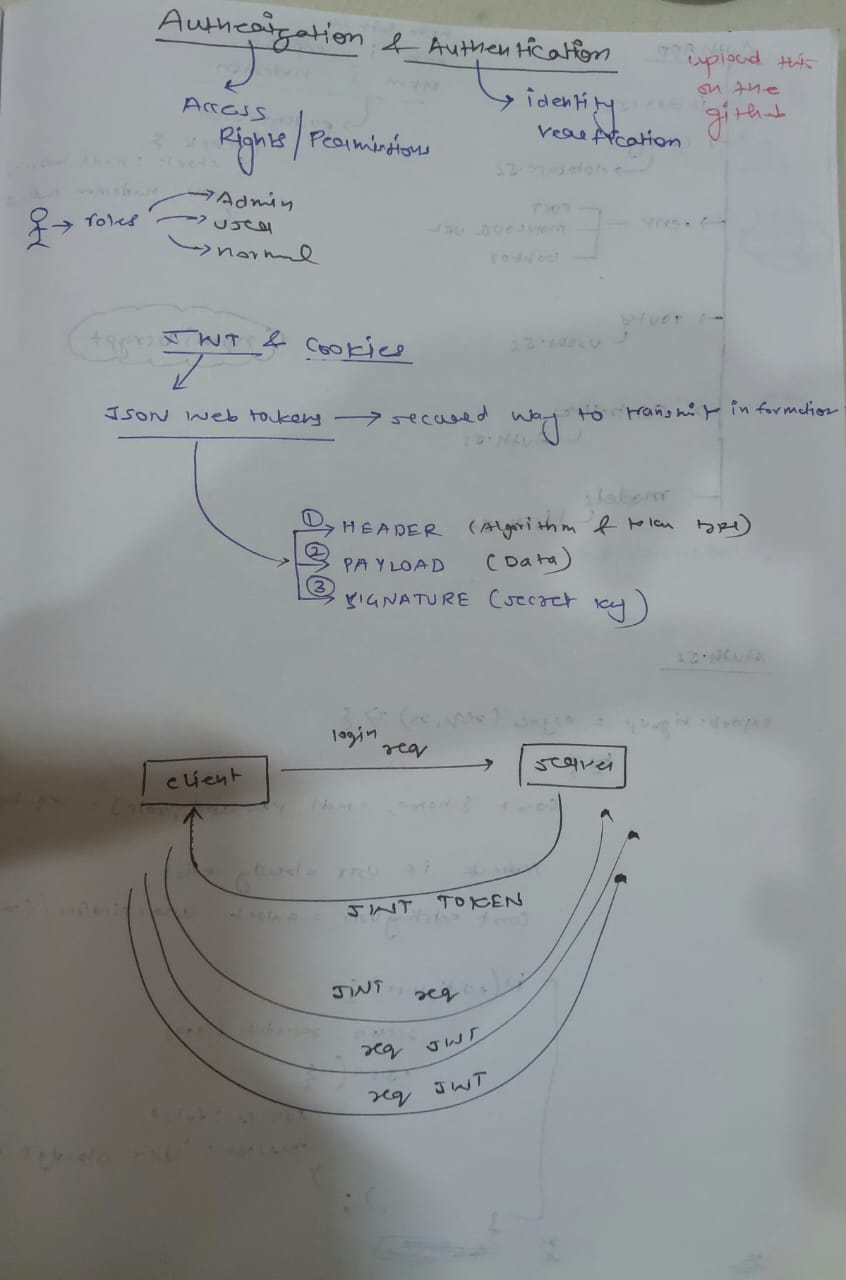 Authorization & Authentication
upload this
on the
github
Access
Rights/Permissions
identity
verification
roles
Admin
user
normal
JWT & Cookies
JSON Web tokens → secured way to transmit information
① HEADER (Algorithm & token type)
② PAYLOAD (Data)
③ SIGNATURE (secret key)
login
req
client
server
JWT TOKEN
JWT req
req JWT
req JWT